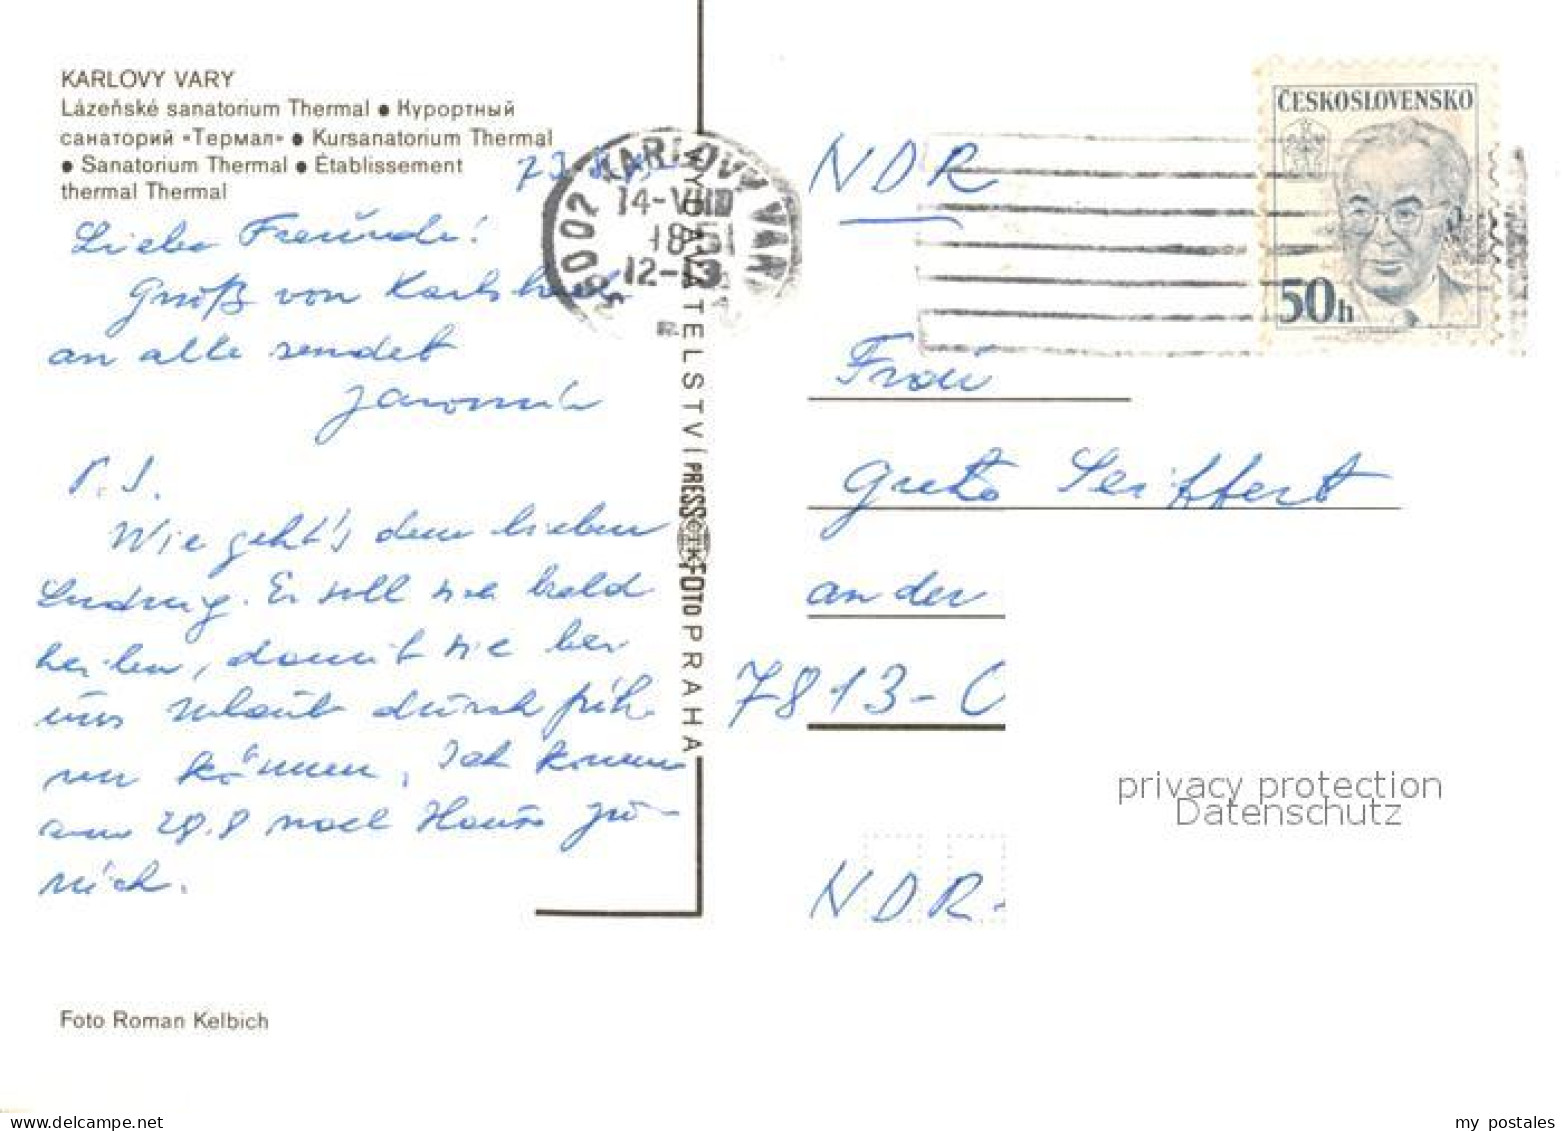 KARLOVY VARY
Lázeňské sanatorium Thermal ● Курортный
санаторий «Термал» ● Kursanatorium Thermal
● Sanatorium Thermal ● Établissement
thermal Thermal
Liebe Freunde!
Gruß von Karlsbad
an alle sendet
Jaromír
P.S.
Wie geht's dem lieben
Ludwig. Er soll sie bald
heilen, damit sie bei
uns Urlaub durchfüh-
ren können, Ich komme
am 28.8 nach Haus zu-
rück.
Foto Roman Kelbich
VYDAVATELSTVÍ PRESSFOTO PRAHA
KARLOVY VARY
14-VIII
18
12-13
ČESKOSLOVENSKO
50h
NDR
Frau
Greta Seiffert
an der
7813-C
NDR.
privacy protection
Datenschutz
delcampe.net
my_postales